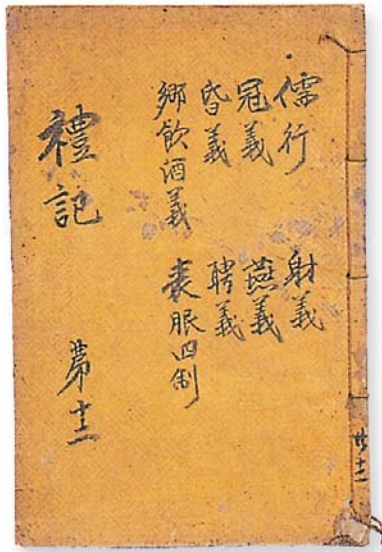 儒行
冠義
昏義
鄉飲酒義
射義
燕義
聘義
喪服四制
禮記
第十二
共十二